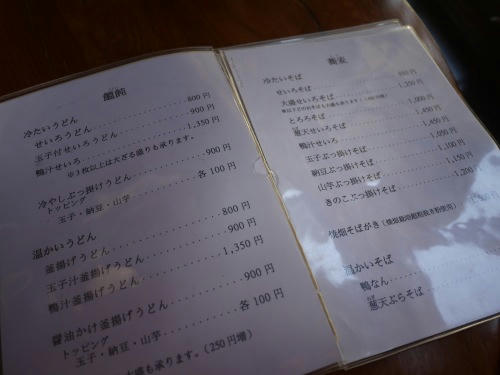 饂飩
冷たいうどん
せいろうどん ・・・・・・ 800円
玉子付せいろうどん ・・・・・・ 900円
鴨汁せいろ ・・・・・・ 1,350円
※1枚以上は大ざる盛りも承ります。
冷やしぶっ掛けうどん ・・・・・・ 900円
トッピング
玉子・納豆・山芋 ・・・・・・ 各100円
温かいうどん
釜揚げうどん ・・・・・・ 800円
玉子汁釜揚げうどん ・・・・・・ 900円
鴨汁釜揚げうどん ・・・・・・ 1,350円
醤油かけ釜揚げうどん ・・・・・・ 900円
トッピング
玉子・納豆・山芋 ・・・・・・ 各100円
大盛も承ります。(250円増)
蕎麦
冷たいそば
せいろそば
大盛せいろそば ・・・・・・ 1,250円
とろろそば ・・・・・・ 1,000円
葱天せいろそば ・・・・・・ 1,450円
鴨汁せいろ ・・・・・・ 1,450円
玉子ぶっ掛けそば ・・・・・・ 1,050円
納豆ぶっ掛けそば ・・・・・・ 1,100円
山芋ぶっ掛けそば ・・・・・・ 1,150円
きのこぶっ掛けそば ・・・・・・ 1,200
焼畑そばがき
温かいそば
鴨なん
葱天ぷらそば